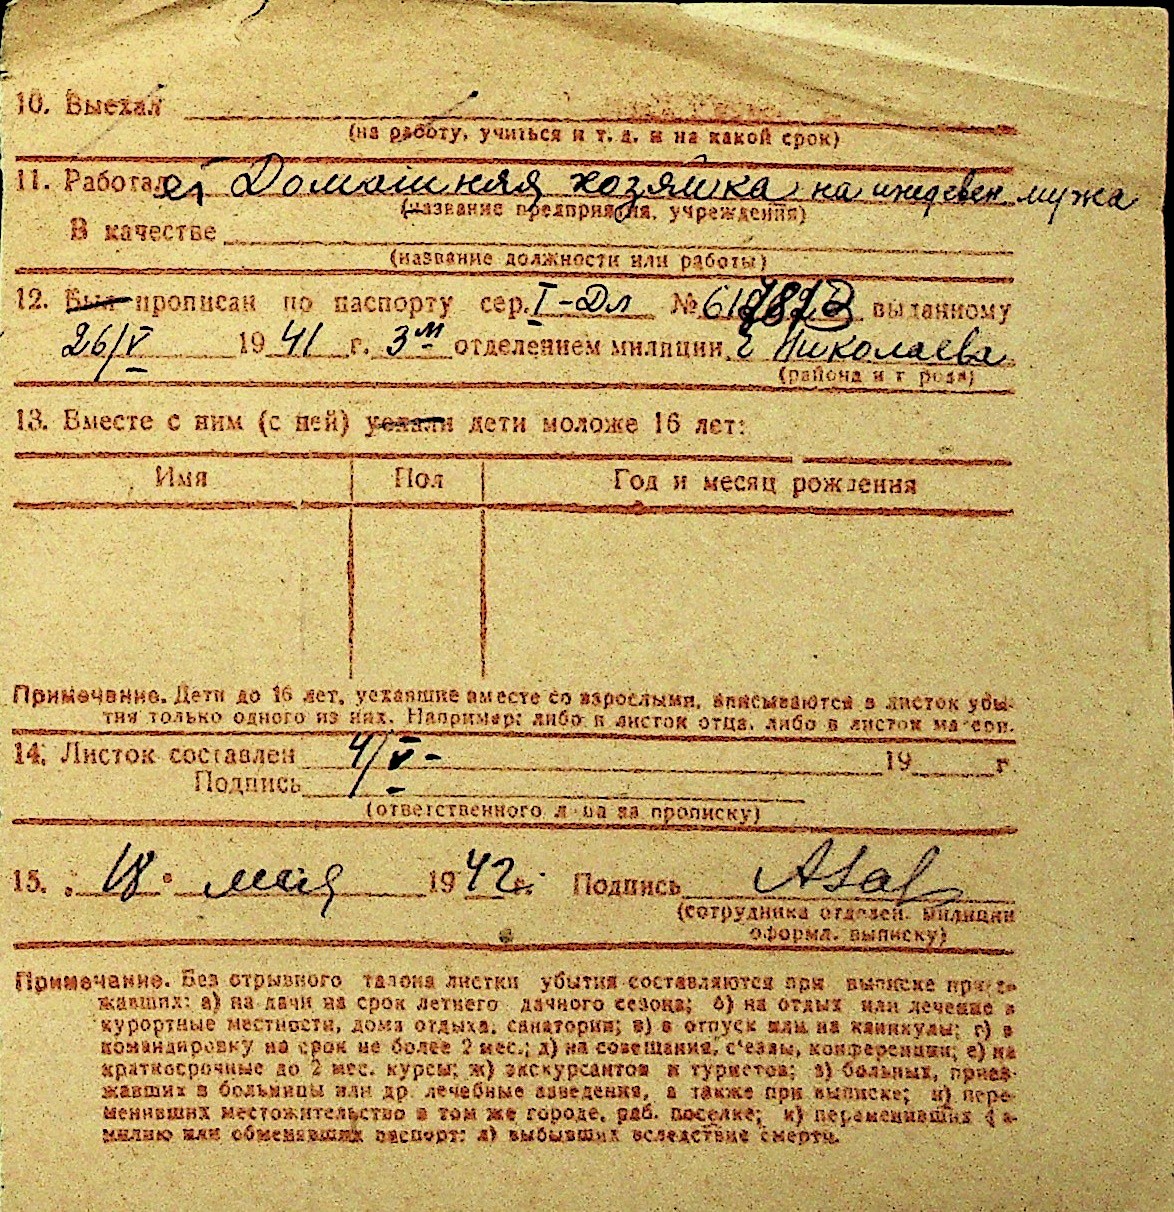 10. Выехал
(на работу, учиться и т. д. и на какой срок)
11. Работает Домашняя хозяйка на иждевен мужа
(название предприятия, учреждения)
В качестве
(название должности или работы)
12. Был прописан по паспорту сер. I-Дл № выданному
26/V 1941 г. 3м отделением милиции г Николаева
(района и города)
13. Вместе с ним (с ней) уехали дети моложе 16 лет:
Имя Пол Год и месяц рождения
Примечание. Дети до 16 лет, уехавшие вместе со взрослыми, вписываются в листок убы-
тия только одного из них. Например: либо в листок отца, либо в листок матери.
14. Листок составлен 4/V- 19 г
Подпись
(ответственного лица за прописку)
15. 18 мая 1942 г. Подпись
(сотрудника отделен. милиции
оформл. выписку)
Примечание. Без отрывного талона листки убытия составляются при выписке приез-
жавших: а) на дачи на срок летнего дачного сезона; б) на отдых или лечение в
курортные местности, дома отдыха, санатории; в) в отпуск или на каникулы; г) в
командировку на срок не более 2 мес.; д) на совещания, с'езды, конференции; е) на
краткосрочные до 2 мес. курсы; ж) экскурсантов и туристов; з) больных, приез-
жавших в больницы или др. лечебные заведения, а также при выписке; и) пере-
менивших местожительство в том же городе, раб. поселке; к) переменивших фа-
милию или обменявших паспорт; л) выбывших вследствие смерти.